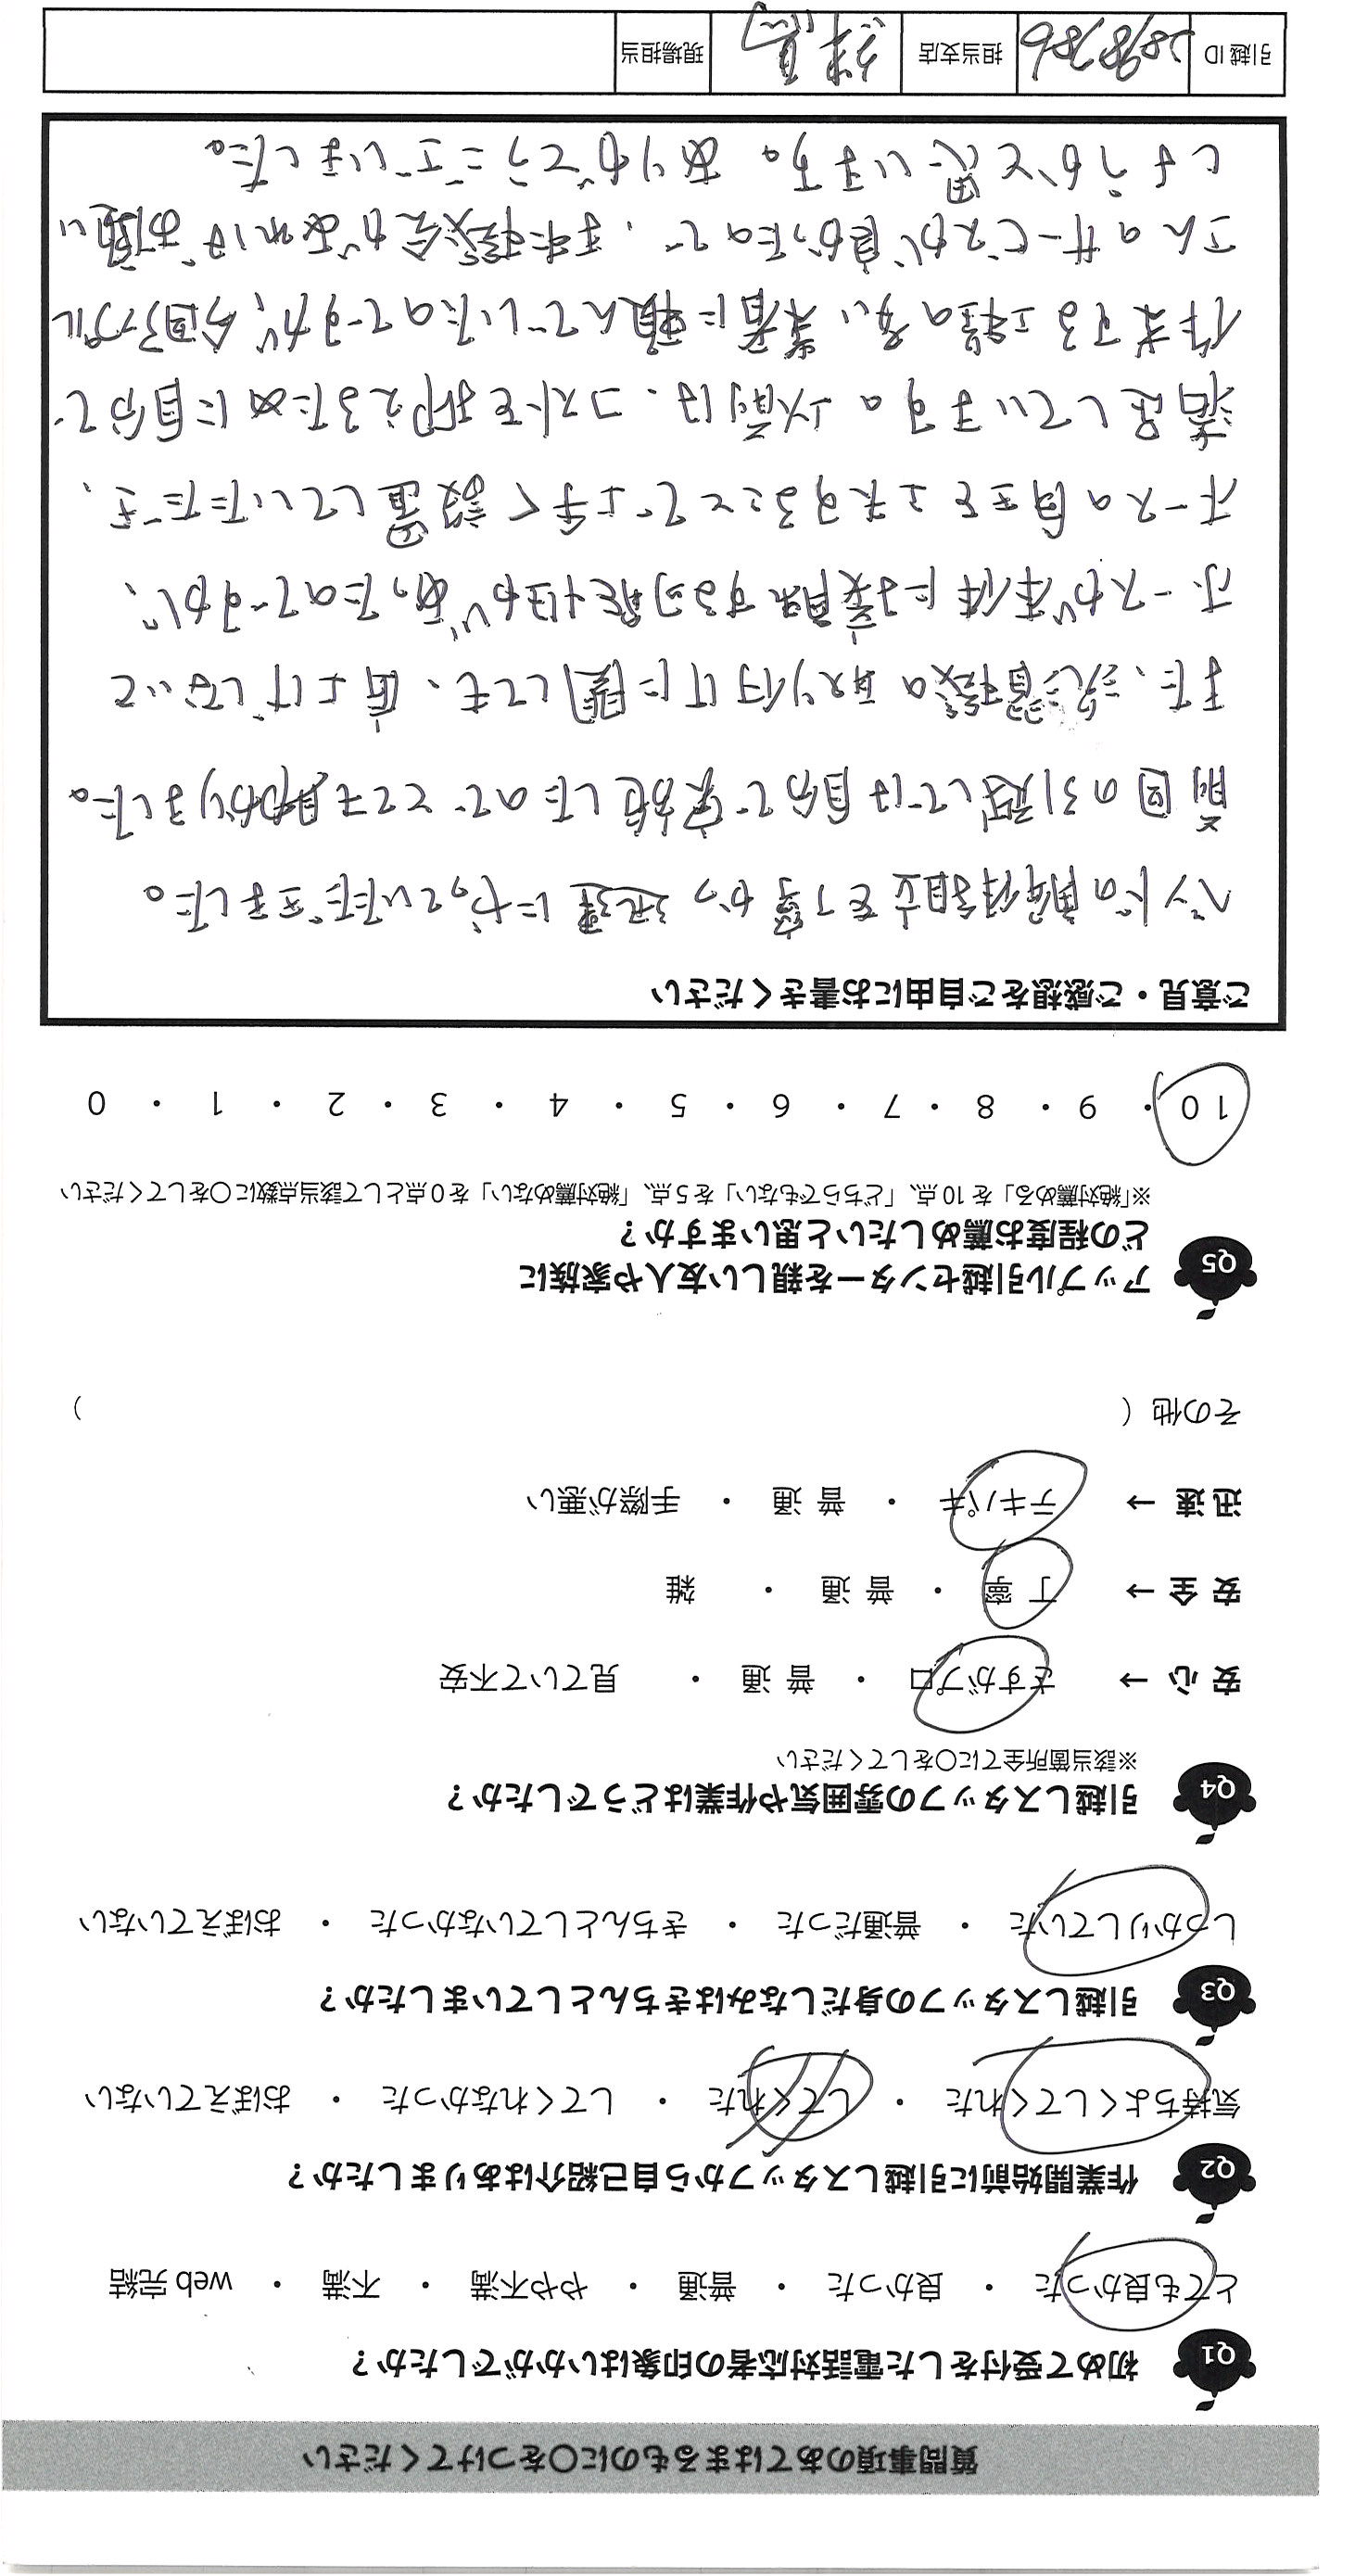 質問事項のあてはまるものに〇をつけてください
Q1 初めて受付をした電話対応者の印象はいかがでしたか？
とても良かった ・ 良かった ・ 普通 ・ やや不満 ・ 不満 ・ web 完結
Q2 作業開始前に引越しスタッフから自己紹介はありましたか？
気持ちよくしてくれた ・ してくれた ・ してくれなかった ・ おぼえていない
Q3 引越しスタッフの身だしなみはきちんとしていましたか？
しっかりしていた ・ 普通だった ・ きちんとしていなかった ・ おぼえていない
Q4 引越しスタッフの雰囲気や作業はどうでしたか？
※該当箇所全てに〇をしてください
安 心 → さすがプロ ・ 普 通 ・ 見ていて不安
安 全 → 丁 寧 ・ 普 通 ・ 雑
迅 速 → テキパキ ・ 普 通 ・ 手際が悪い
その他 （ ）
Q5 アップル引越センターを親しい友人や家族に
どの程度お薦めしたいと思いますか？
※「絶対薦める」を 10 点、「どちらでもない」を 5 点、「絶対薦めない」を 0 点として該当点数に〇をしてください
10 ・ 9 ・ 8 ・ 7 ・ 6 ・ 5 ・ 4 ・ 3 ・ 2 ・ 1 ・ 0
ご意見・ご感想をご自由にお書きください
ベッドの解体組立を丁寧かつ迅速にやっていただきました。
前回の引越しでは自分で実施したのでとても助かりました。
また、洗濯機の取り付けに関しても、底上げしないで
ホースが本体に接触する可能性があったのですが、
ホースの向きを工夫することで上手く設置していただき、
満足しています。以前は、コストを抑えるために自分で
作業する工程の多い業者に頼んでいたのですが、今回アップル
さんのサービスが良かったので、また機会があればお願い
しようかと思います。ありがとうございました。
引越 ID 2898786 担当支店 練馬 現場担当